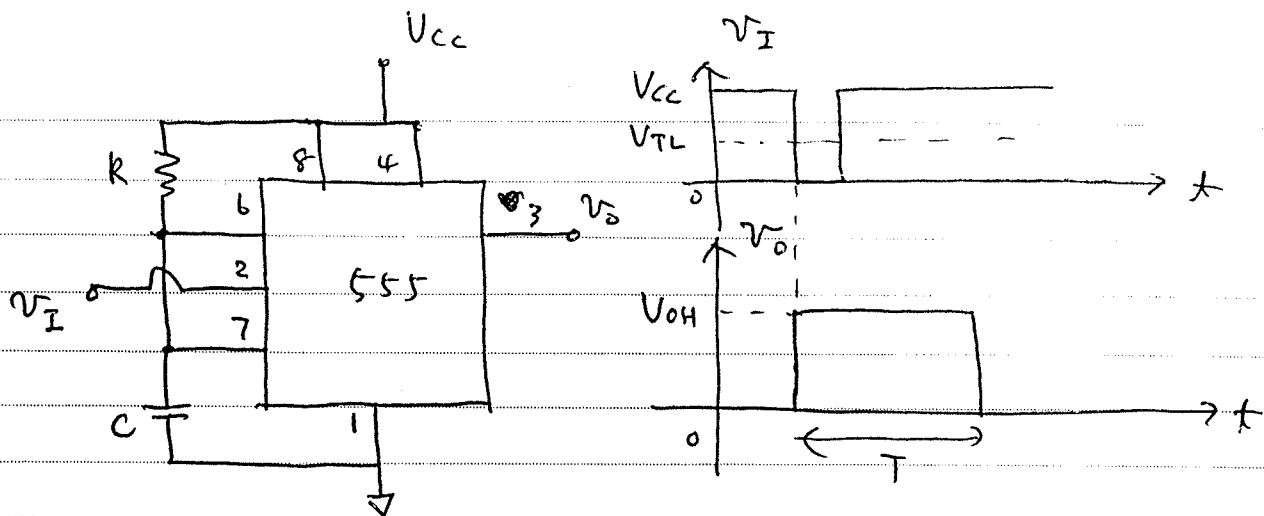 VCC
R
8 4
6
3 vo
2
555
vI
7
C
1
vI
VCC
VTL
0
t
vo
VOH
0
t
T